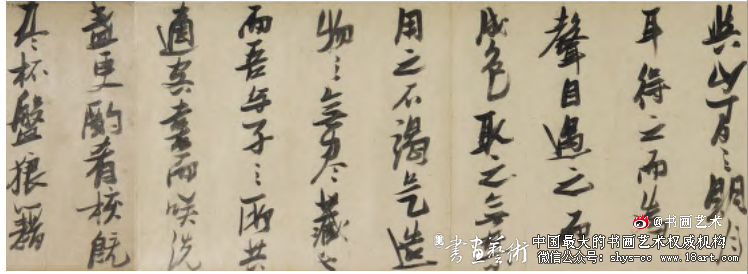 與山間之明月
耳得之而為
聲目遇之而
成色取之無
用之不竭是造
物之無盡藏也
而吾與子之所共
適客喜而笑洗
盞更酌肴核既
盡杯盤狼藉
@书画艺术
書畫藝術
中国最大的书画艺术权威机构
微信公众号:shys-cc www.18art.com